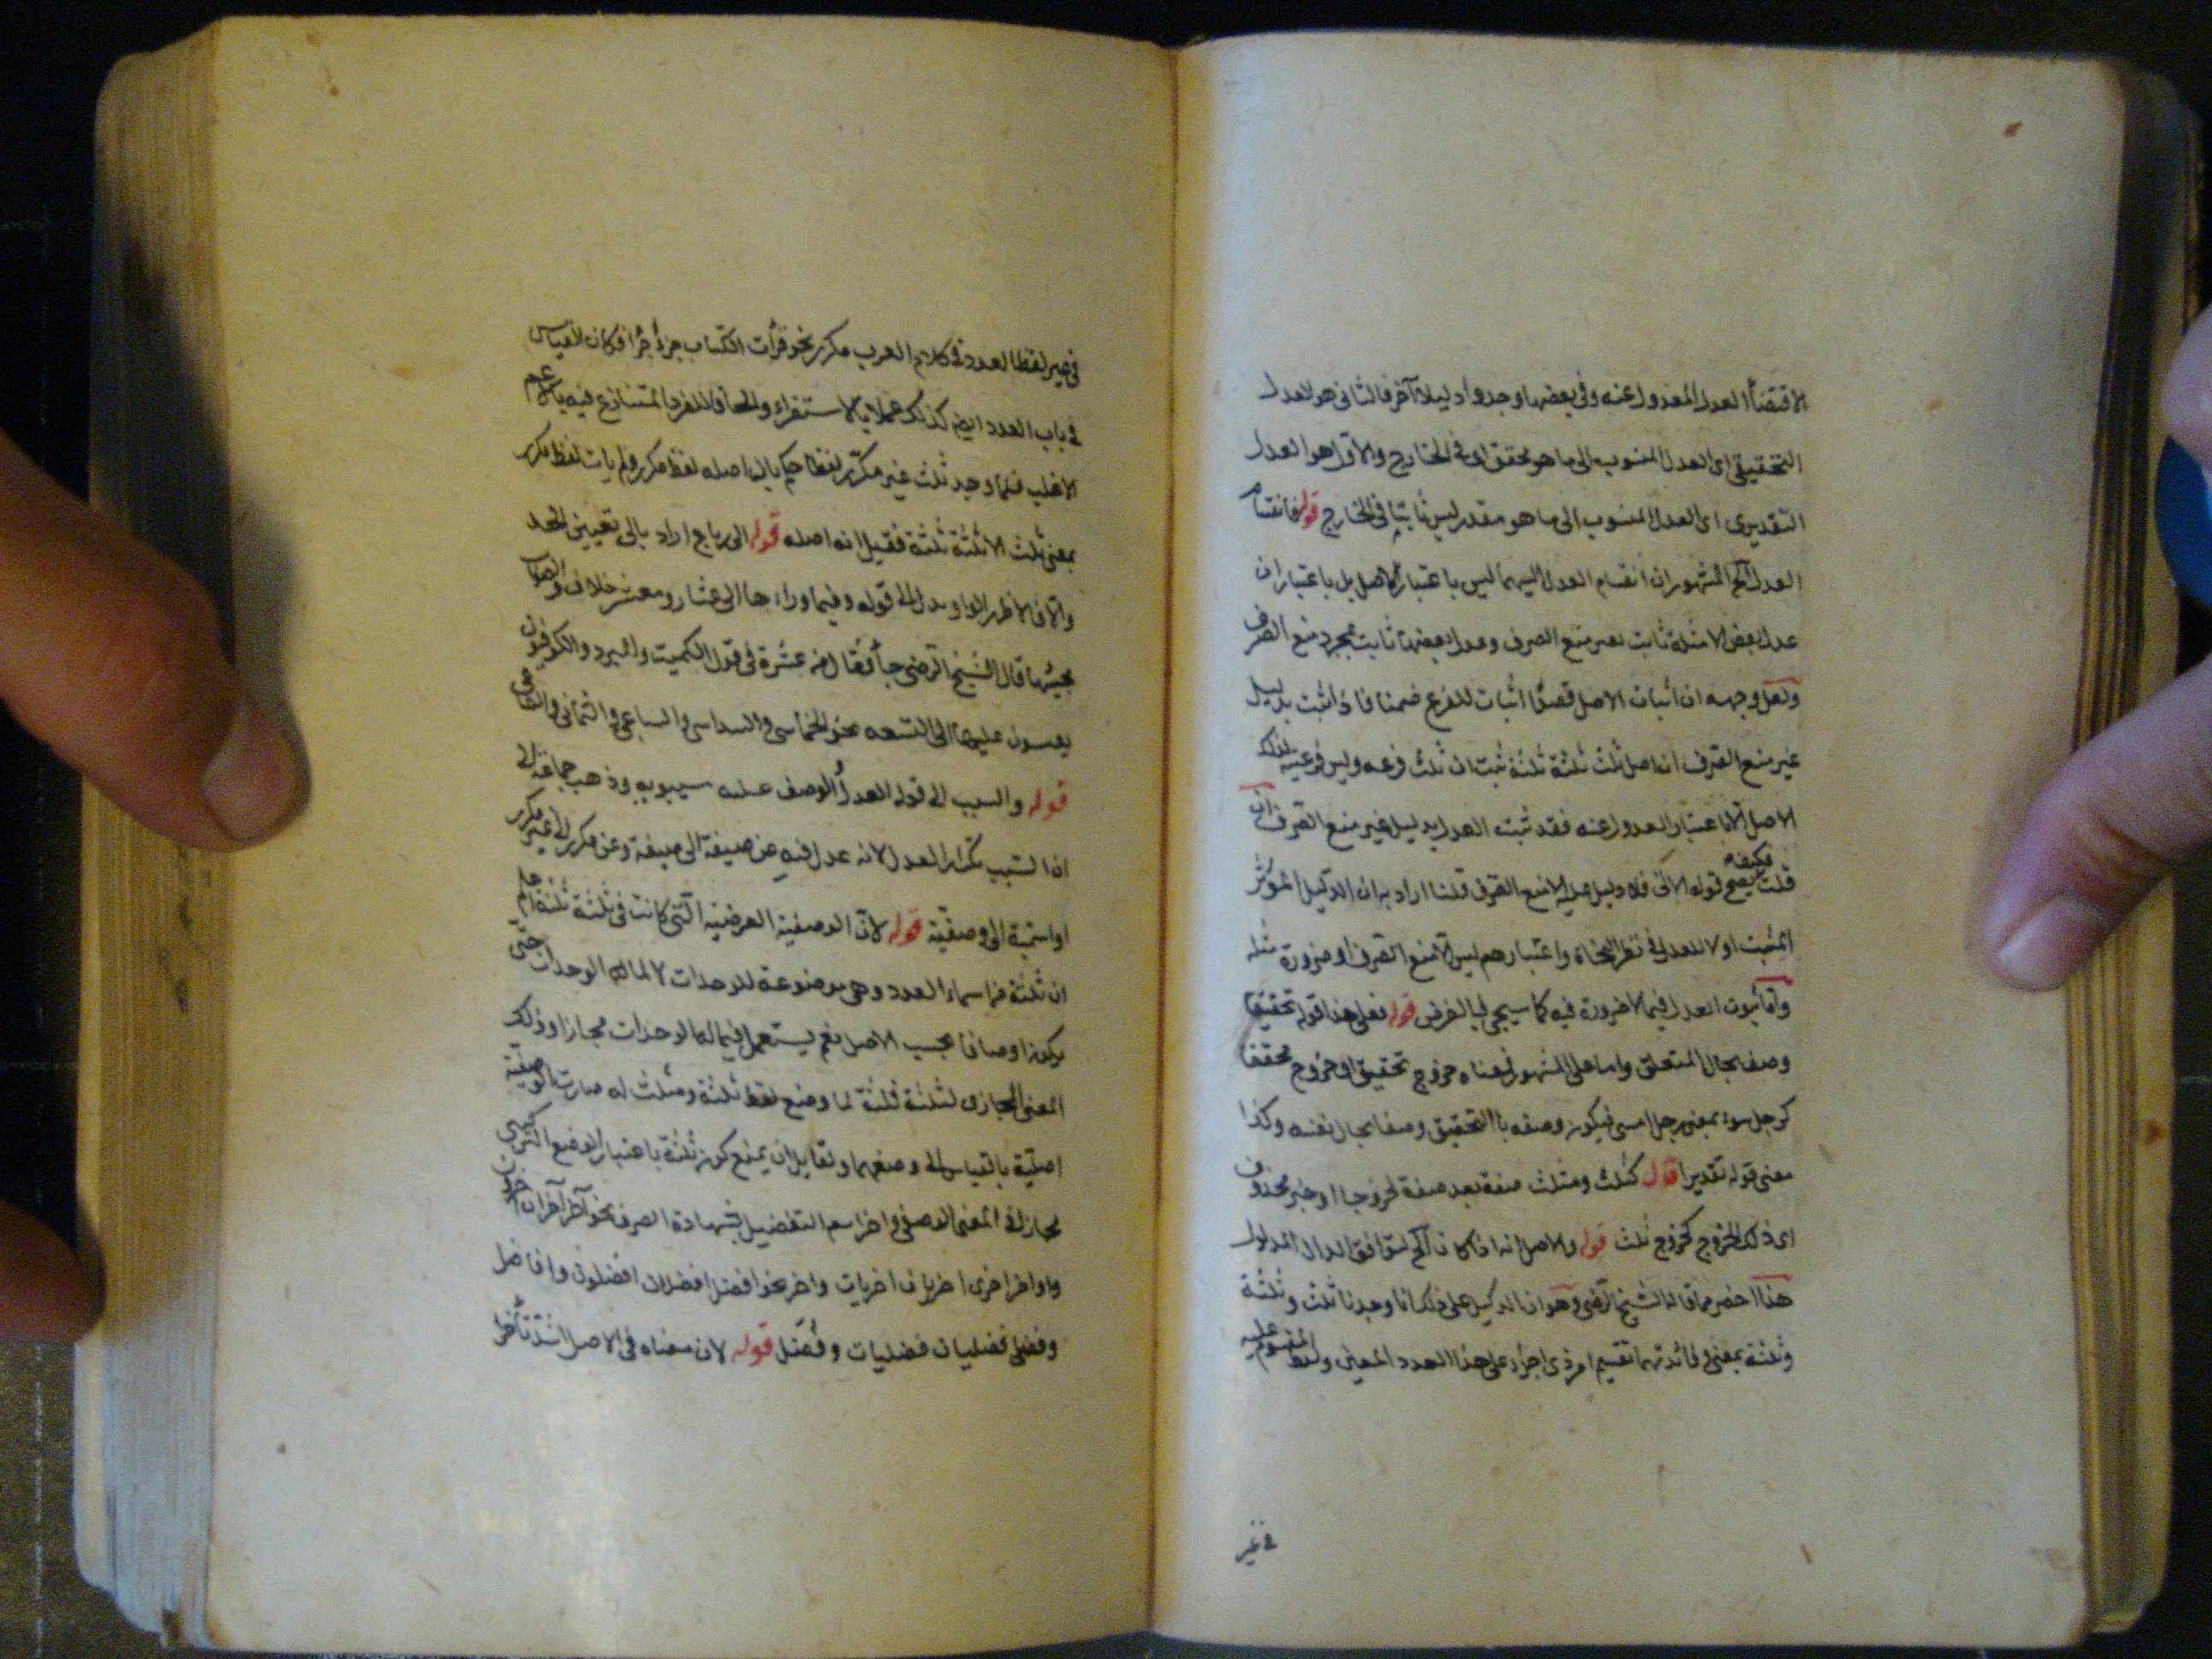 الاقتضاء العدل المعدول عنه وفى بعضها وجدوا دليلا آخر فالثانى هو العدل
التحقيقى اى العدل المنسوب الى ما هو محقق اى فى الخارج والاول هو العدل
التقديرى اى العدل المنسوب الى ما هو مقدر ليس ثابتا فى الخارج قوله فانقسام
العدل الخ المشهور ان انقسام العدل اليهما ليس باعتبار الاصل بل باعتبار ان
عدل بعض الامثلة ثابت بغير منع الصرف وعدل بعضها ثابت بمجرد منع الصرف
ولعل وجهه ان اثبات الاصل قصدا اثبات للفرع ضمنا فاذا ثبت بدليل
غير منع الصرف ان اصل ثلث ثلثة ثلثة ثبت ان ثلث فرعه وليس فرعيته لذلك
الاصل الا باعتبار العدول عنه فقد ثبت العدل بدليل غير منع الصرف فان
قلت فكيف يصح قوله الآتى فلا دليل عليه الا منع الصرف قلنا اراد به ان الدليل المؤثر
المثبت اولا للعدل فى نظر النحاة واعتبارهم ليس الا منع الصرف او ضرورة مثله
واما ثبوت العدل فيما لا ضرورة فيه كما سيجى فبالفرض قوله فعلى هذا قوله تحقيقا
وصف بحال المتعلق واما على المشهور فمعناه خروج تحقيق او خروج محققا
كرجل سوء بمعنى رجل امسى فيكون وصفه بالتحقيق وصفا بحال نفسه وكذا
معنى قوله تقديرا قال كثلث ومثلث صفة بعد صفة لخروجا او خبر محذوف
اى ذلك الخروج كخروج ثلث قوله والاصل انه اذا كان الخ لتوافق الدال المدلول
هذا اخصر مما قاله الشيخ الرضى وهو ان الدليل على ذلك انا وجدنا ثلث وثلثة
وثلثة بمعنى وفائدتهما تقسيم امر ذى اجزاء على هذا العدد المعين ولفظ المقسوم عليه
فى غير
فى غير لفظ العدد فى كلام العرب مكرر نحو قرأت الكتاب جزأ جزأ فكان القياس
فى باب العدد ايضا كذلك عملا بالاستقراء والحاقا للفرد المتنازع فيه بالاعم
الاغلب فلما وجد ثلث غير مكرر لفظا حكم بان اصله لفظ مكرر ولم يات لفظ مكرر
بمعنى ثلث الا ثلثة ثلثة فقيل انه اصله قوله الى رباع اراد بالى تعيين الحد
والا فالاظهر الواو بدل الى قوله وفيما وراءها الى عشار ومعشر خلاف والصواب
مجيئها قال الشيخ الرضى جاء فعال من عشرة فى قول الكميت والمبرد والكوفيون
يقيسون عليها الى التسعة نحو الخماسى والسداسى والسباعى والثمانى والتساعى
قوله والسبب الى قوله العدل والوصف عليه سيبويه وذهب جماعة الى
ان السبب تكرار العدل لانه عدل فيه عن صيغة الى صيغة وعن مكرر الى غير مكرر
او اسمية الى وصفية قوله لان الوصفية العرضية التى كانت فى ثلثة ثلثة اعلم
ان ثلثة من اسماء العدد وهى موضوعة للوحدات لا لما له الوحدات حتى
يكون اوصافا بحسب الاصل نعم يستعمل فيما له الوحدات مجازا وذلك
المعنى المجازى لثلثة ثلثة لما وضع لفظ ثلثة ومثلث له صارت الوصفية
اصلية بالقياس الى وضعهما ولقائل ان يمنع كون ثلثة باعتبار الوضع التركيبى
مجازا فى المعنى الوصفى واخر اسم التفضيل بشهادة الصرف نحو آخر آخران آخرون
واواخر اخرى اخريان اخريات واخر نحو افضل افضلان افضلون وافاضل
وفضلى فضليان فضليات وفضل قوله لان معناه فى الاصل اشد تأخرا